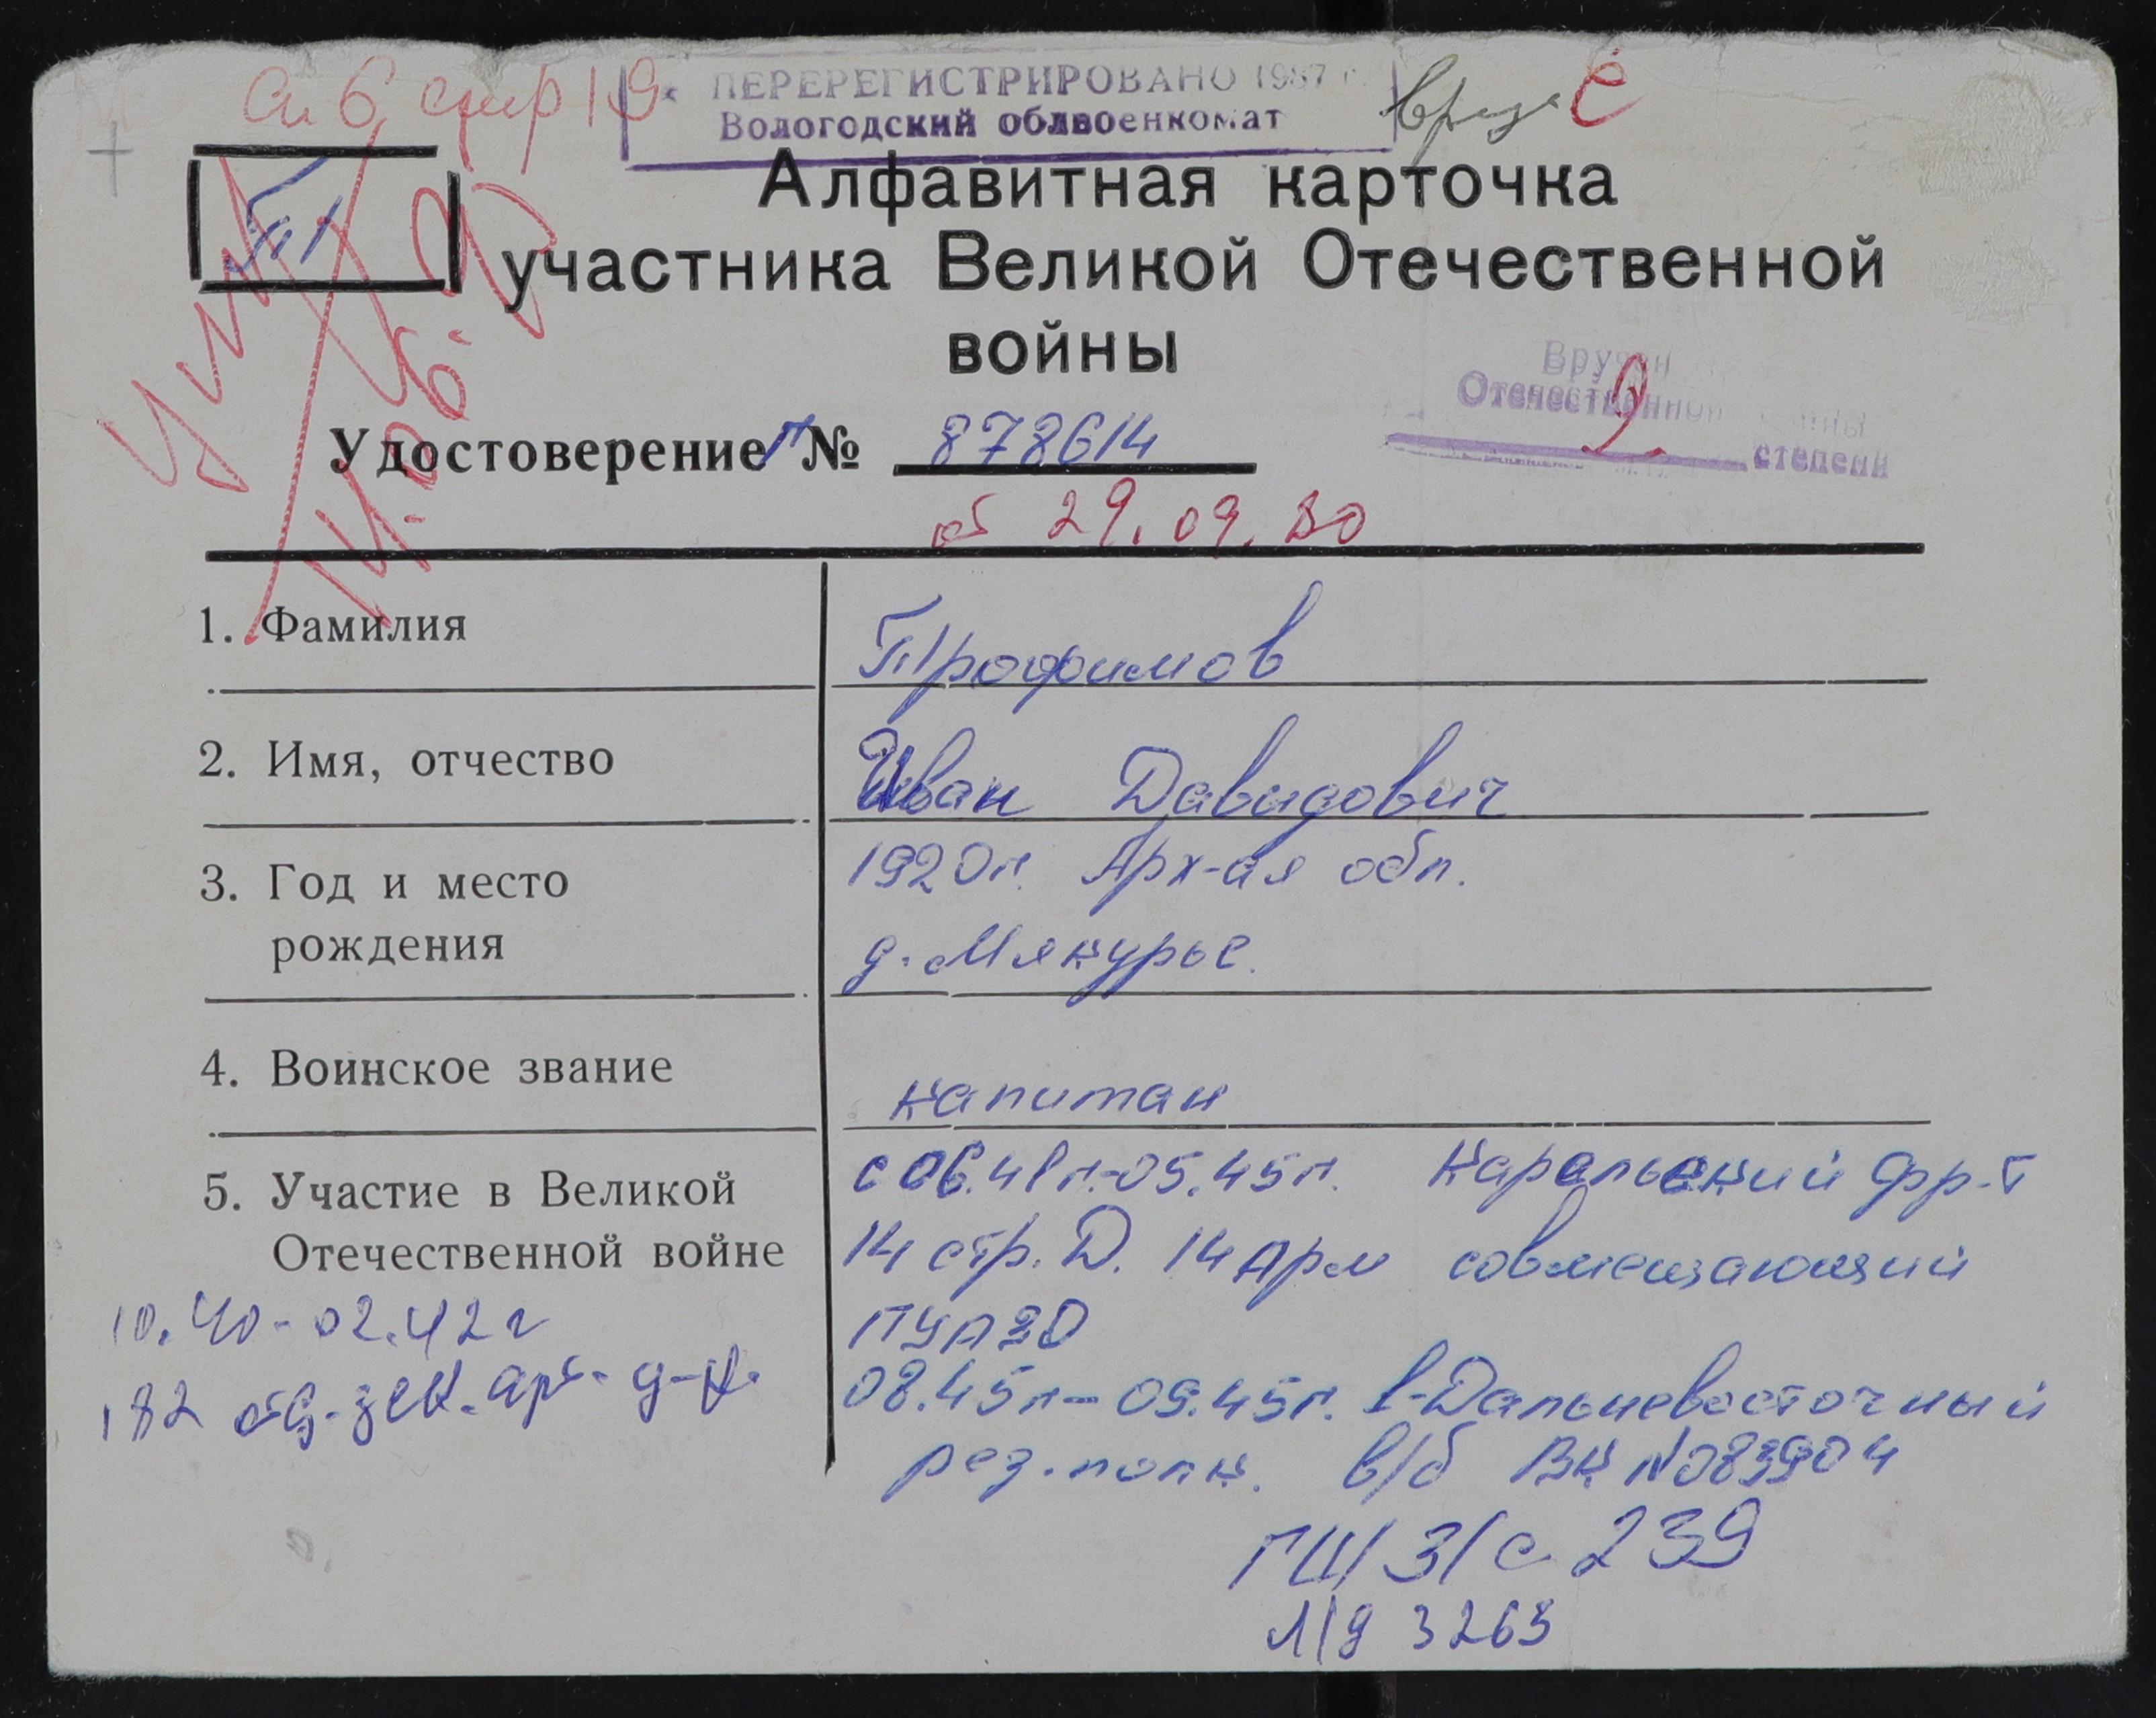 ПЕРЕРЕГИСТРИРОВАНО 1987 г.
Вологодский облвоенкомат
Алфавитная карточка
участника Великой Отечественной
войны
Вручен
Отечественной войны
2 степени
Удостоверение № 878614
от 29.09.80
1. Фамилия
Трофимов
2. Имя, отчество
Иван Давидович
3. Год и место рождения
1920г. Арх-ая обл.
д. Мякурье.
4. Воинское звание
капитан
5. Участие в Великой Отечественной войне
с 06.41г.-05.45г. Карельский фр-т
14 стр. Д. 14 Арм совмещающий
ПУАЗО
08.45г-09.45г. 1-Дальневосточный
рез. полк. в/б ВК №083904
10.40-02.42г
182 отд. зен. арт. д-н.
ГШ/3/с 239
Л/д 3263